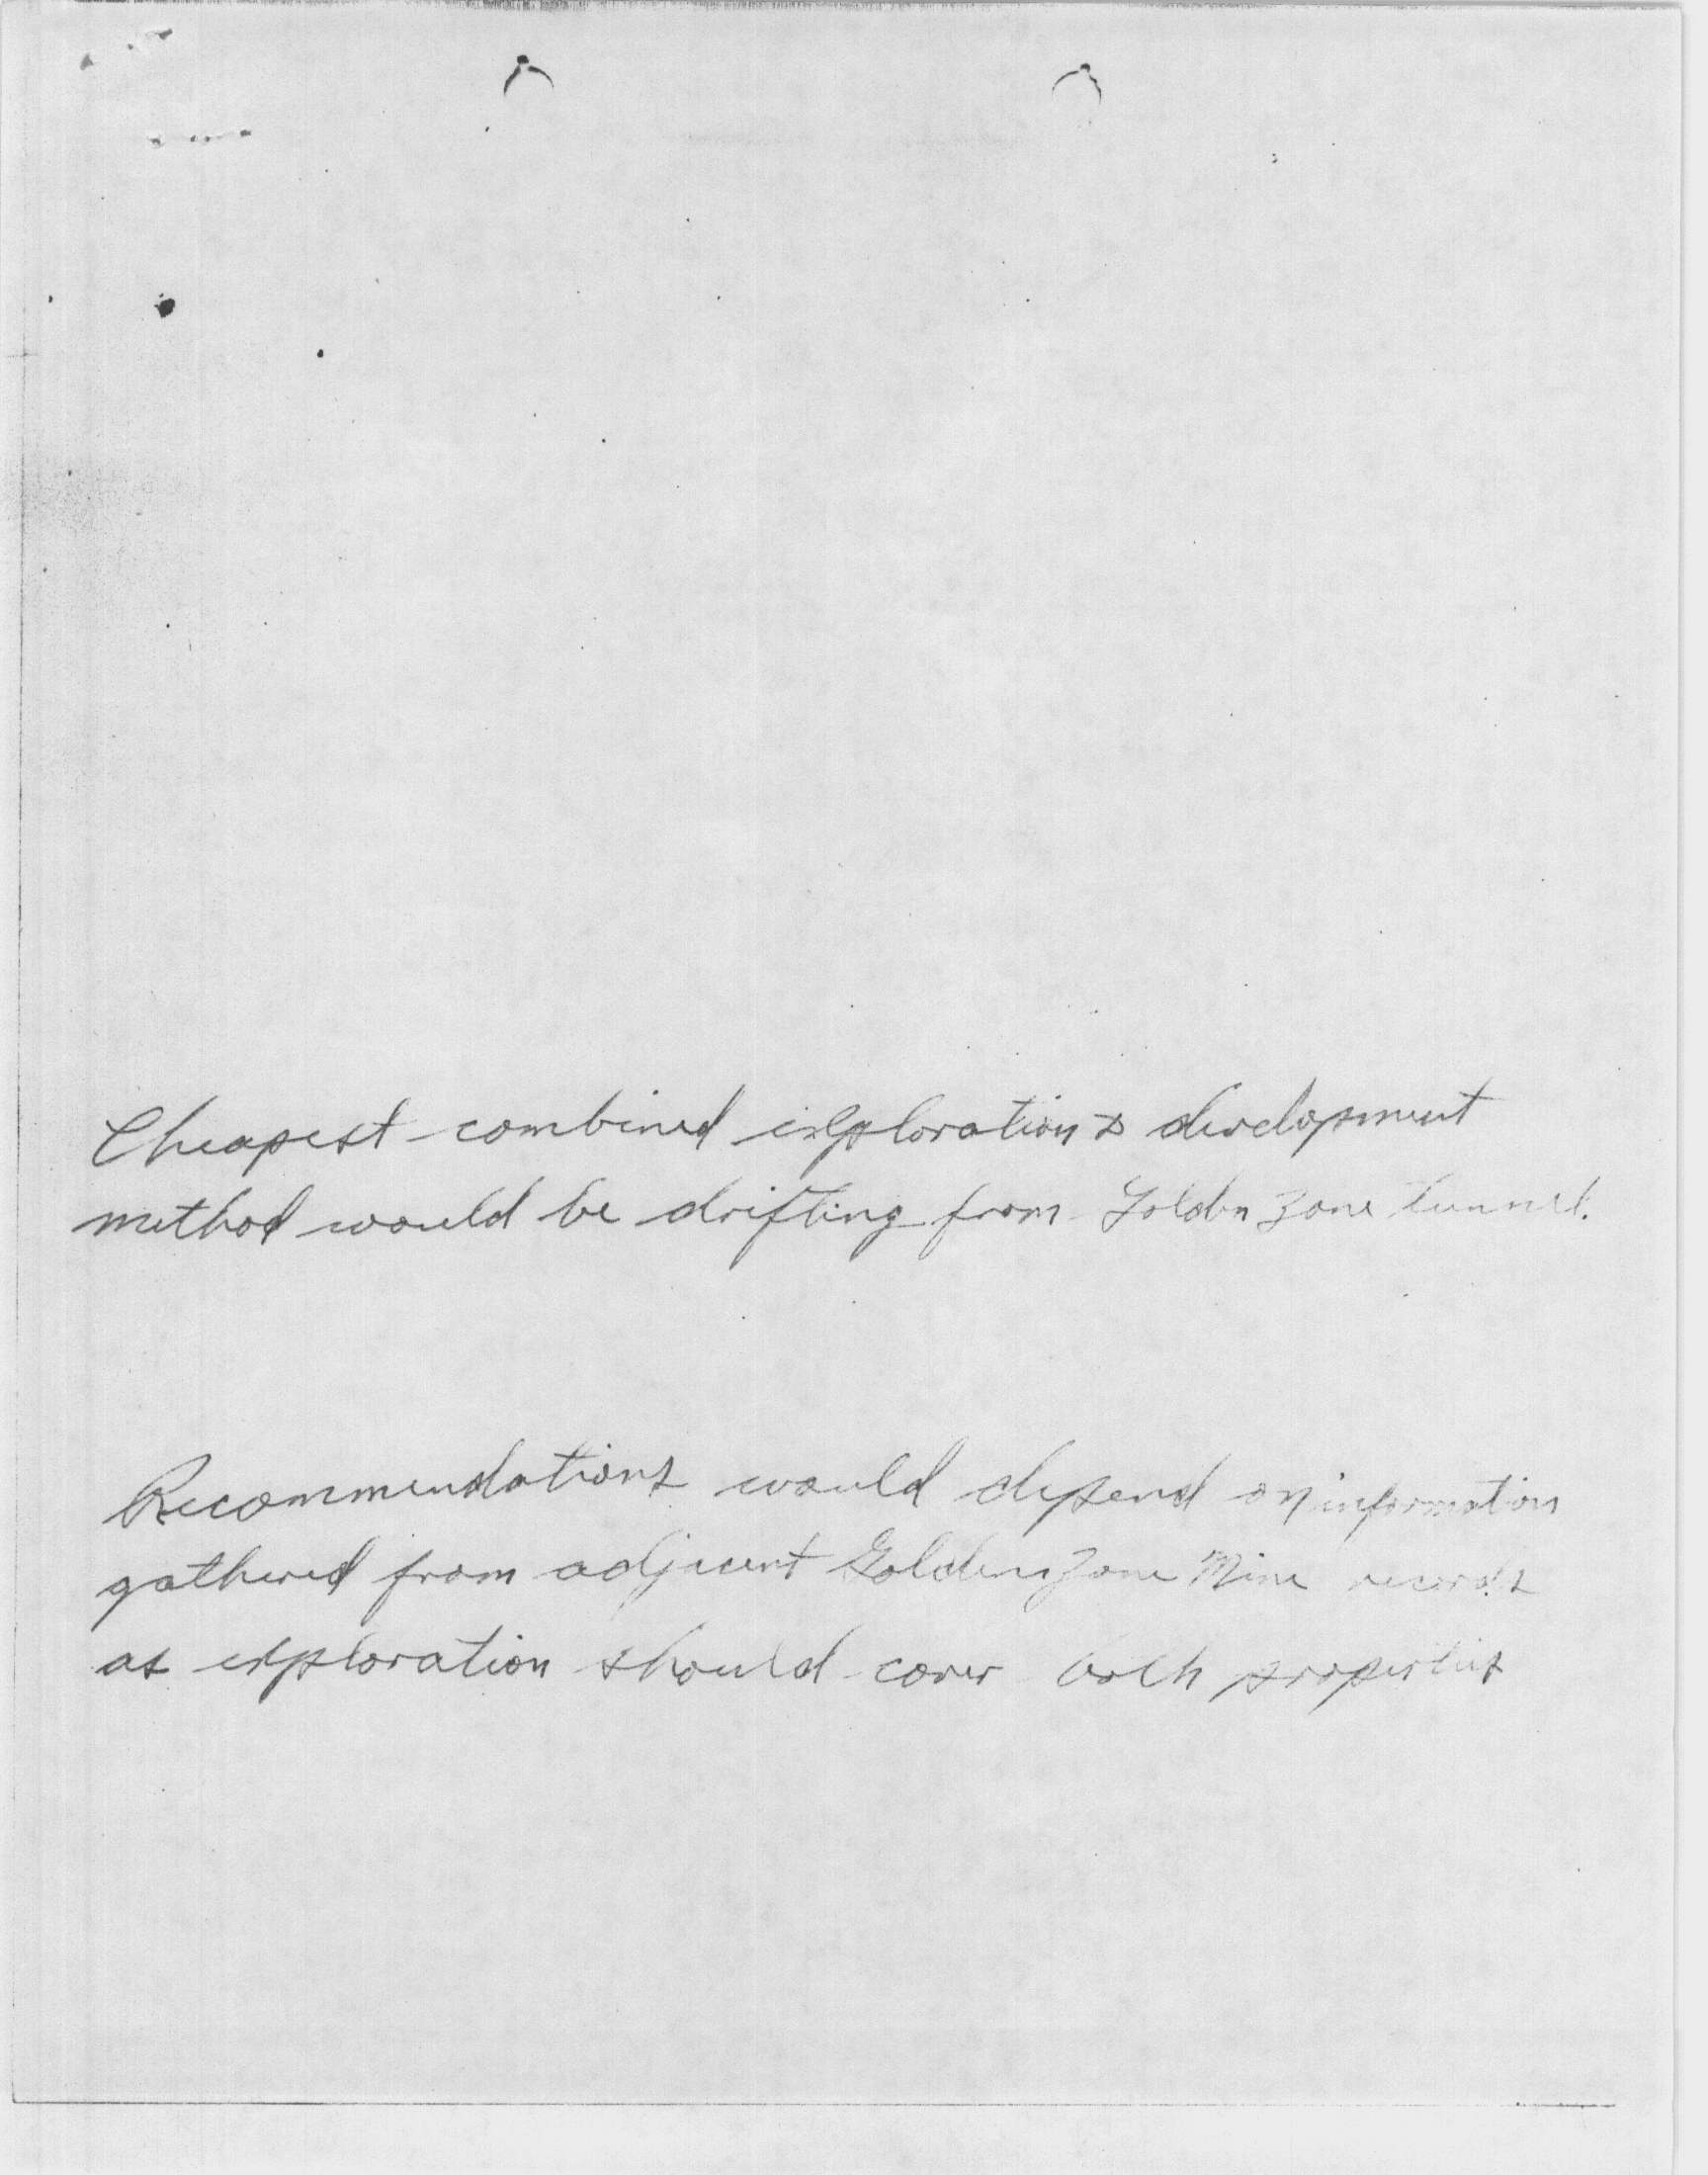 Cheapest combined exploration & development
method would be drifting from Golden Zone tunnel.
Recommendations would depend on information
gathered from adjacent Golden Zone Mine records
as exploration should cover both properties